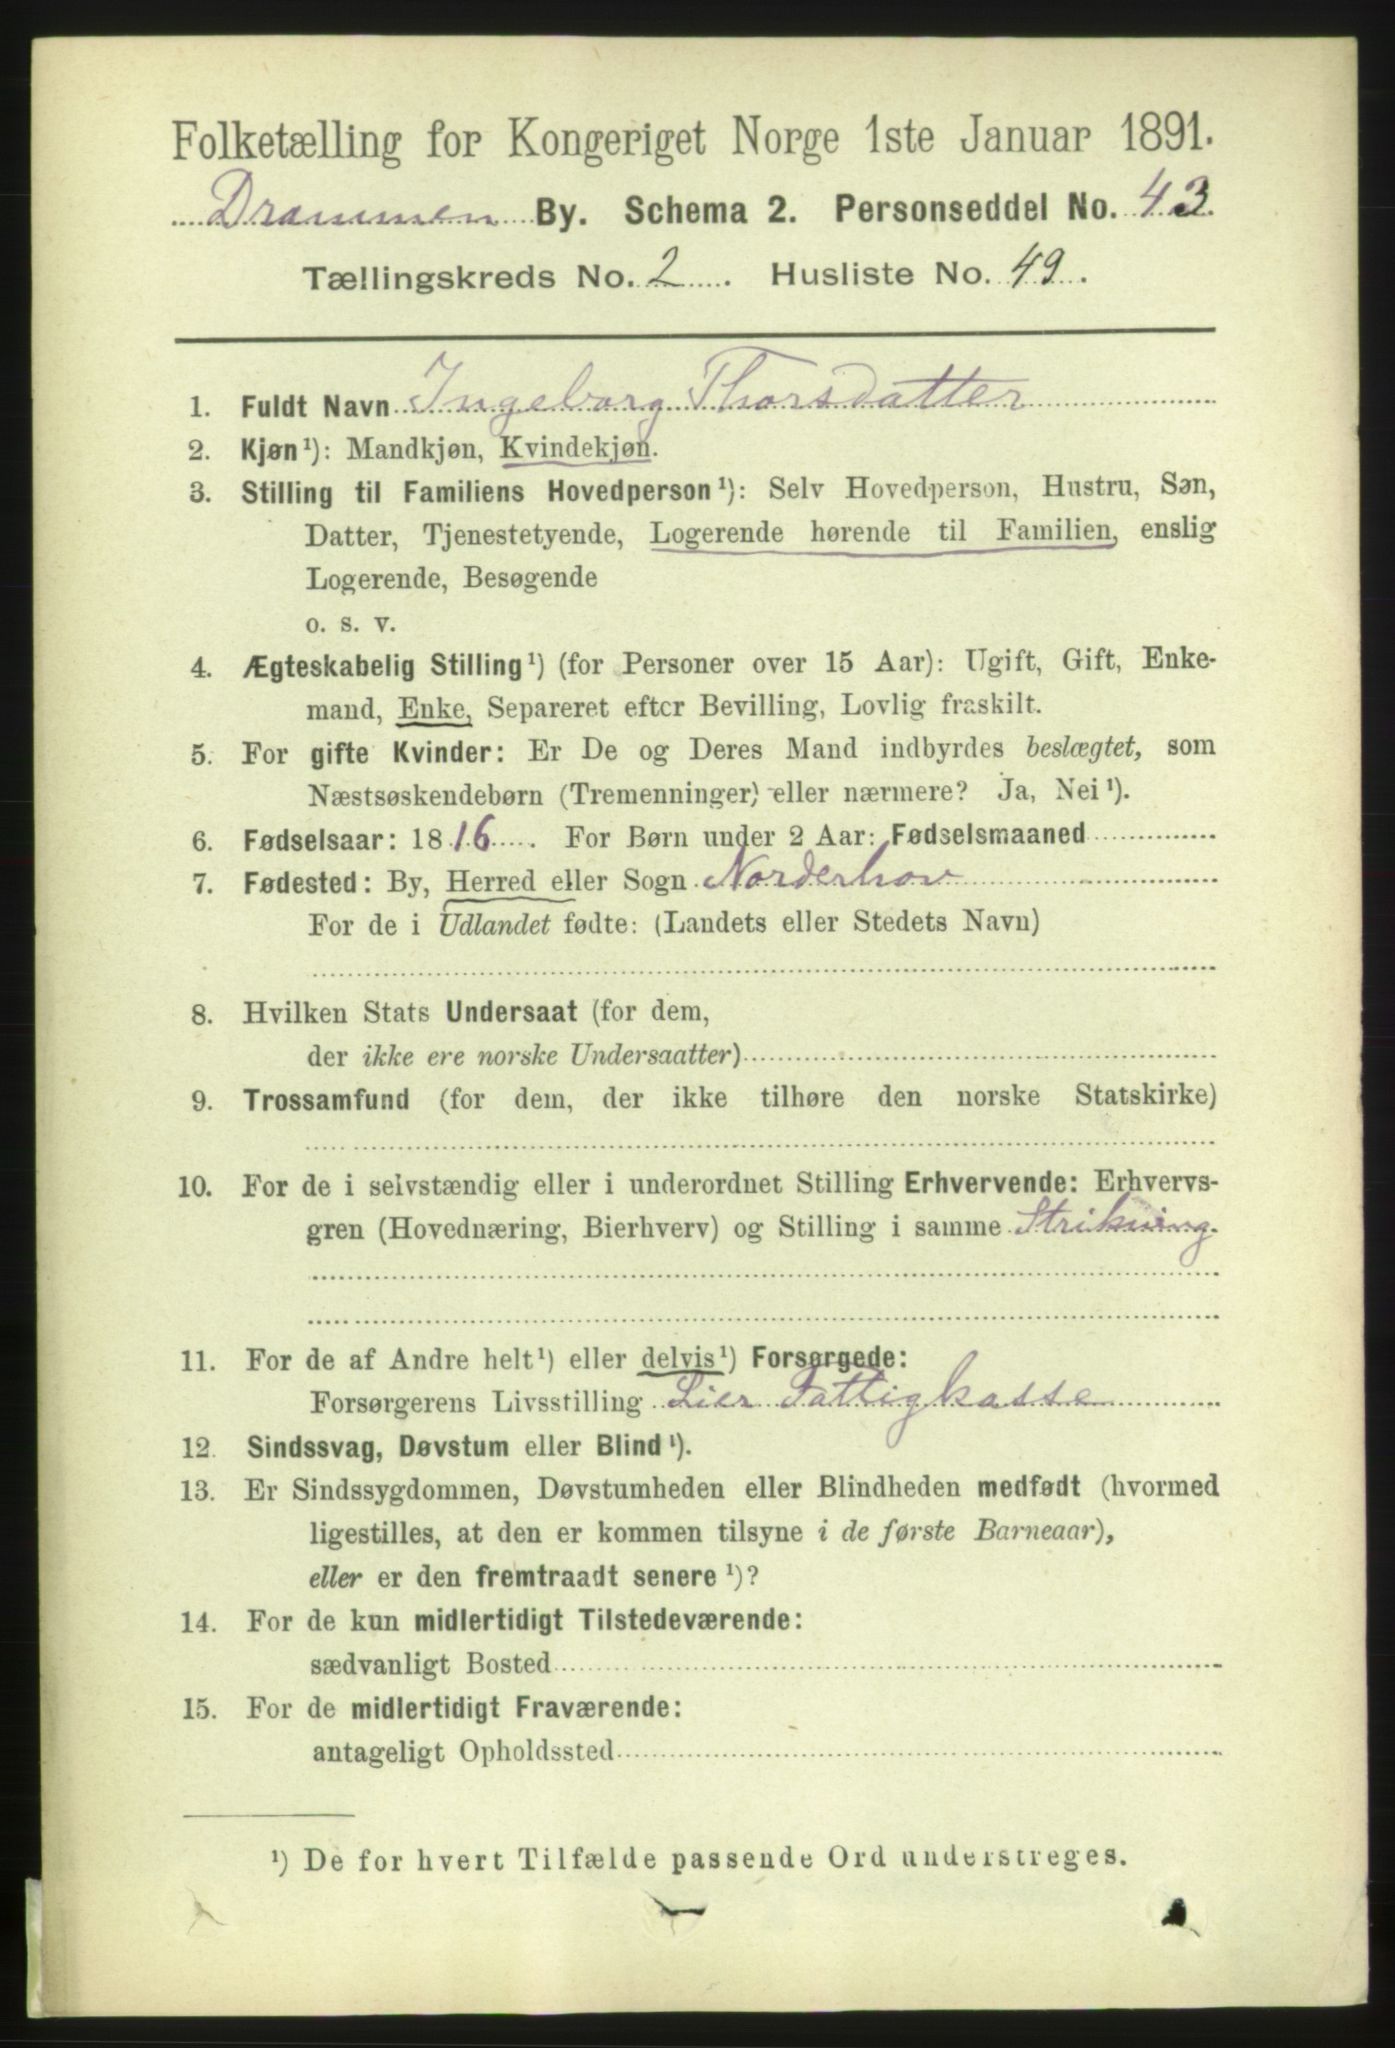 Folketælling for Kongeriget Norge 1ste Januar 1891.
Drammen By. Schema 2. Personseddel No. 43.
Tællingskreds No. 2. Husliste No. 49.
1. Fuldt Navn Ingeborg Thorsdatter
2. Kjøn¹): Mandkjøn, Kvindekjøn.
3. Stilling til Familiens Hovedperson¹): Selv Hovedperson, Hustru, Søn,
Datter, Tjenestetyende, Logerende hørende til Familien, enslig
Logerende, Besøgende
o. s. v.
4. Ægteskabelig Stilling¹) (for Personer over 15 Aar): Ugift, Gift, Enke-
mand, Enke, Separeret efter Bevilling, Lovlig fraskilt.
5. For gifte Kvinder: Er De og Deres Mand indbyrdes beslægtet, som
Næstsøskendebørn (Tremenninger) eller nærmere? Ja, Nei¹).
6. Fødselsaar: 1816. For Børn under 2 Aar: Fødselsmaaned
7. Fødested: By, Herred eller Sogn Norderhov
For de i Udlandet fødte: (Landets eller Stedets Navn)
8. Hvilken Stats Undersaat (for dem,
der ikke ere norske Undersaatter)
9. Trossamfund (for dem, der ikke tilhøre den norske Statskirke)
10. For de i selvstændig eller i underordnet Stilling Erhvervende: Erhvervs-
gren (Hovednæring, Bierhverv) og Stilling i samme Strikning.
11. For de af Andre helt¹) eller delvis¹) Forsørgede:
Forsørgerens Livsstilling Lier Fattigkasse
12. Sindssvag, Døvstum eller Blind¹).
13. Er Sindssygdommen, Døvstumheden eller Blindheden medfødt (hvormed
ligestilles, at den er kommen tilsyne i de første Barneaar),
eller er den fremtraadt senere¹)?
14. For de kun midlertidigt Tilstedeværende:
sædvanligt Bosted
15. For de midlertidigt Fraværende:
antageligt Opholdssted
¹) De for hvert Tilfælde passende Ord understreges.